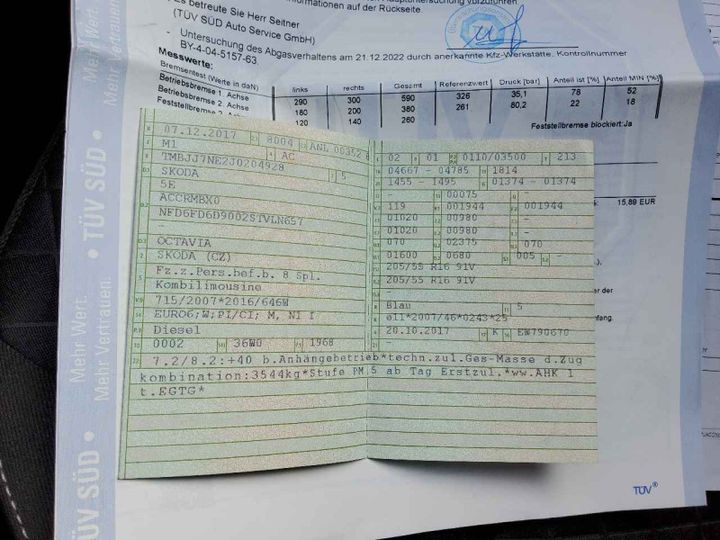 Es betreute Sie Herr Seitner
(TÜV SÜD Auto Service GmbH)
- Untersuchung des Abgasverhaltens am 21.12.2022 durch anerkannte Kfz-Werkstätte, Kontrollnummer
BY-4-04-5157-63.
Messwerte:
Bremsentest (Werte in daN) links rechts Gesamt Referenzwert Druck [bar] Anteil ist [%] Anteil MIN [%]
Betriebsbremse 1. Achse 290 300 590 326 35,1 78 52
Betriebsbremse 2. Achse 180 200 380 261 80,2 22 18
120 140 260
Feststellbremse blockiert:Ja
15,89 EUR
07.12.2017 8004
M1 AC
TMBJJ7NE2J0204928 5
SKODA
5E
ACCRMBX0
-
OCTAVIA
SKODA (CZ)
Fz.z.Pers.bef.b. 8 Spl.
Kombilimousine
715/2007*2016/646W
EURO6;W;PI/CI; M, N1 I
Diesel
0002 36W0 1968
02 01 0110/03500 213
04667 - 04785 1814
1455 - 1495 01374 - 01374
- 00075 -
119 001944 001944
01020 00980 -
01020 00980 -
070 02375 070
01600 0680 005 -
205/55 R16 91V
205/55 R16 91V
-
Blau 5
e11*2007/46*0243*25
20.10.2017 K EW790670
7.2/8.2:+40 b.Anhängebetrieb*techn.zul.Ges-Masse d.Zug
kombination:3544kg*Stufe PM 5 ab Tag Erstzul.*ww.AHK l
t.EGTG*
Mehr Wert.
Mehr Vertrauen.
TÜV SÜD
Mehr Wert.
Mehr Vertrauen.
TÜV SÜD
TÜV®